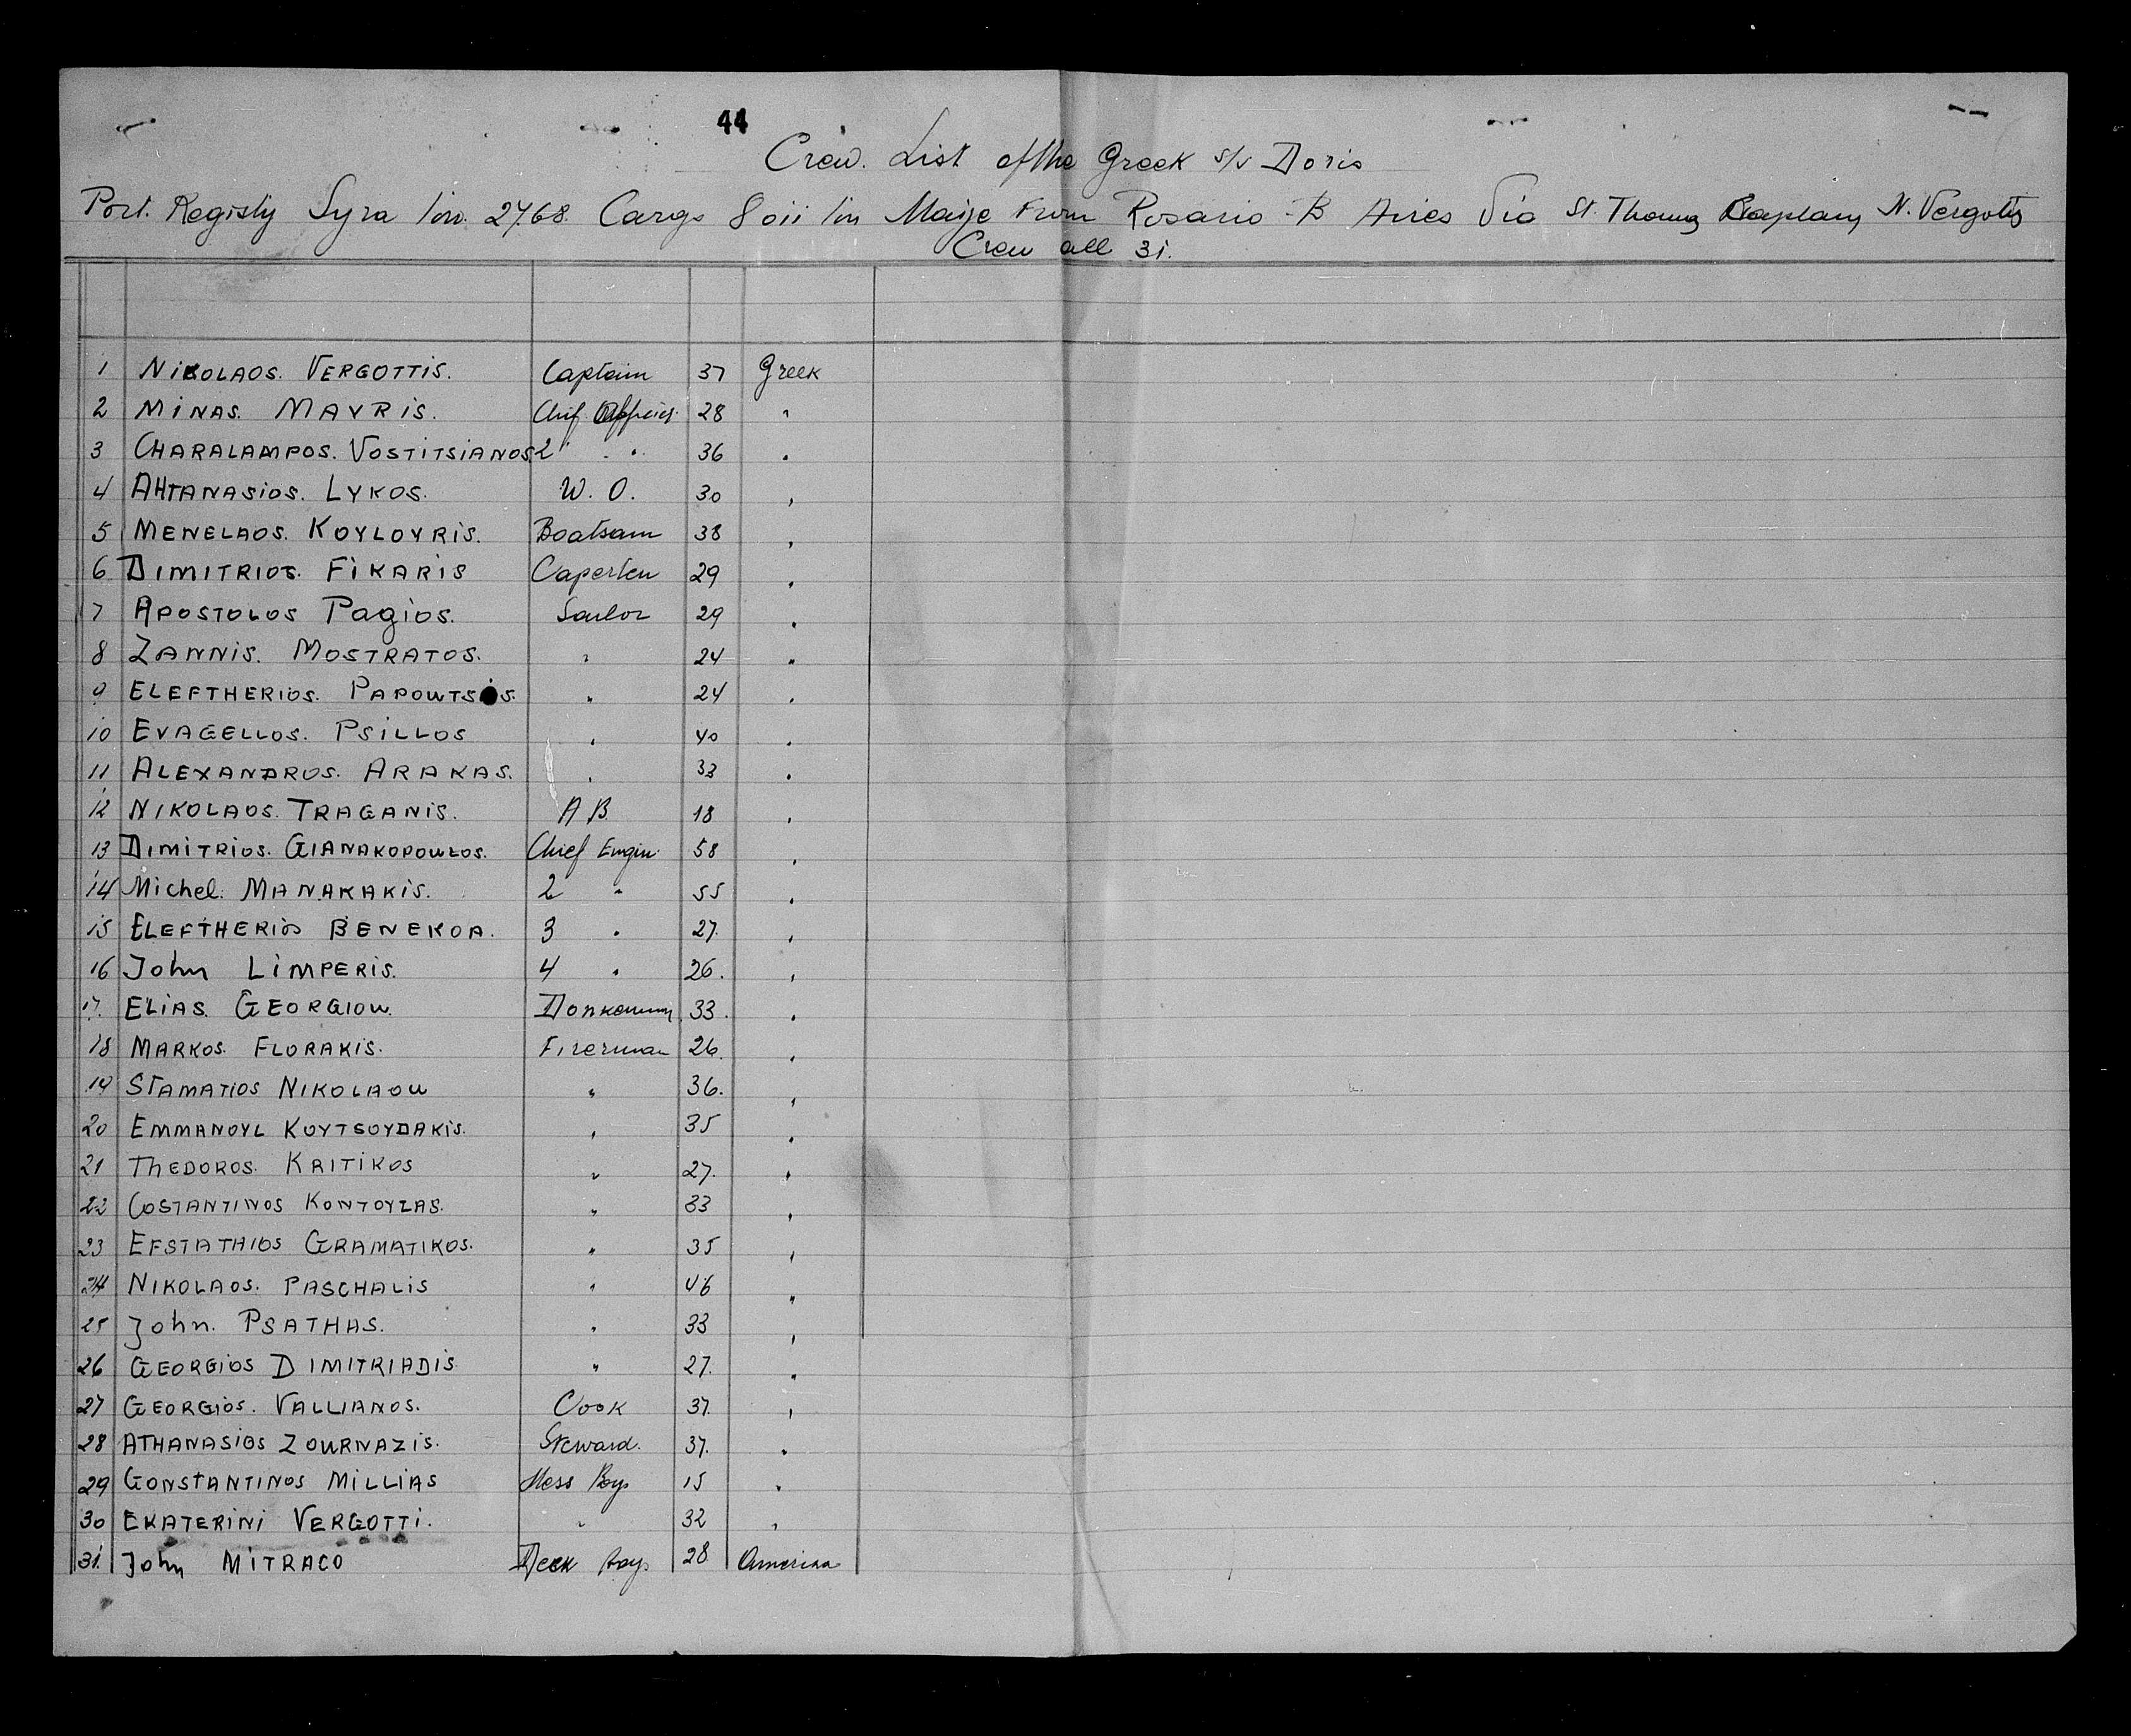 44
Crew. List of the Greek s/s Doris
Port. Registy Syra Ton. 2768. Cargo 8011 Ton Maize From Rosario - B Aires Via St. Thomas N. Vergotis
Crew all 31.
1 NIKOLAOS. VERGOTTIS. Captain 37 Greek
2 MINAS. MAVRIS. Chif 28 "
3 CHARALAMPOS. VOSTITSIANOS 2 " " 36 "
4 AHTANASIOS. LYKOS. W. O. 30 "
5 MENELAOS. KOYLOYRIS. Boatsam 38 "
6 DIMITRIOS. FIKARIS Caperten 29 "
7 APOSTOLOS Pagios. Sailor 29 "
8 ZANNIS. MOSTRATOS. " 24 "
9 ELEFTHERIOS. " 24 "
10 EVAGELLOS. PSILLOS " 40 "
11 ALEXANDROS. ARAKAS. " 33 "
12 NIKOLAOS. TRAGANIS. A B. 18 "
13 DIMITRIOS. GIANAKOPOULOS. Chief Engin. 58 "
14 Michel. MANAKAKIS. 2 " 55 "
15 ELEFTHERIOS BENEKOA. 3 " 27. "
16 John LIMPERIS. 4 " 26. "
17. ELIAS. GEORGIOU. 33. "
18 MARKOS. FLORAKIS. Fireman 26. "
19 STAMATIOS NIKOLAOU " 36. "
20 EMMANOYL KOYTSOYDAKIS. " 35 "
21 THEDOROS. KRITIKOS " 27. "
22 COSTANTINOS KONTOYZAS. " 33 "
23 EFSTATHIOS GRAMATIKOS. " 35 "
24 NIKOLAOS. PASCHALIS " 46 "
25 John. PSATHAS. " 33 "
26 GEORGIOS DIMITRIADIS " 27. "
27 GEORGIOS. VALLIANOS. Cook 37. "
28 ATHANASIOS ZOURNAZIS. Steward. 37. "
29 GONSTANTINOS MILLIAS Mess Boy 15 "
30 EKATERINI VERGOTTI. " 32 "
31. John MITRACO Deck Boy 28 America